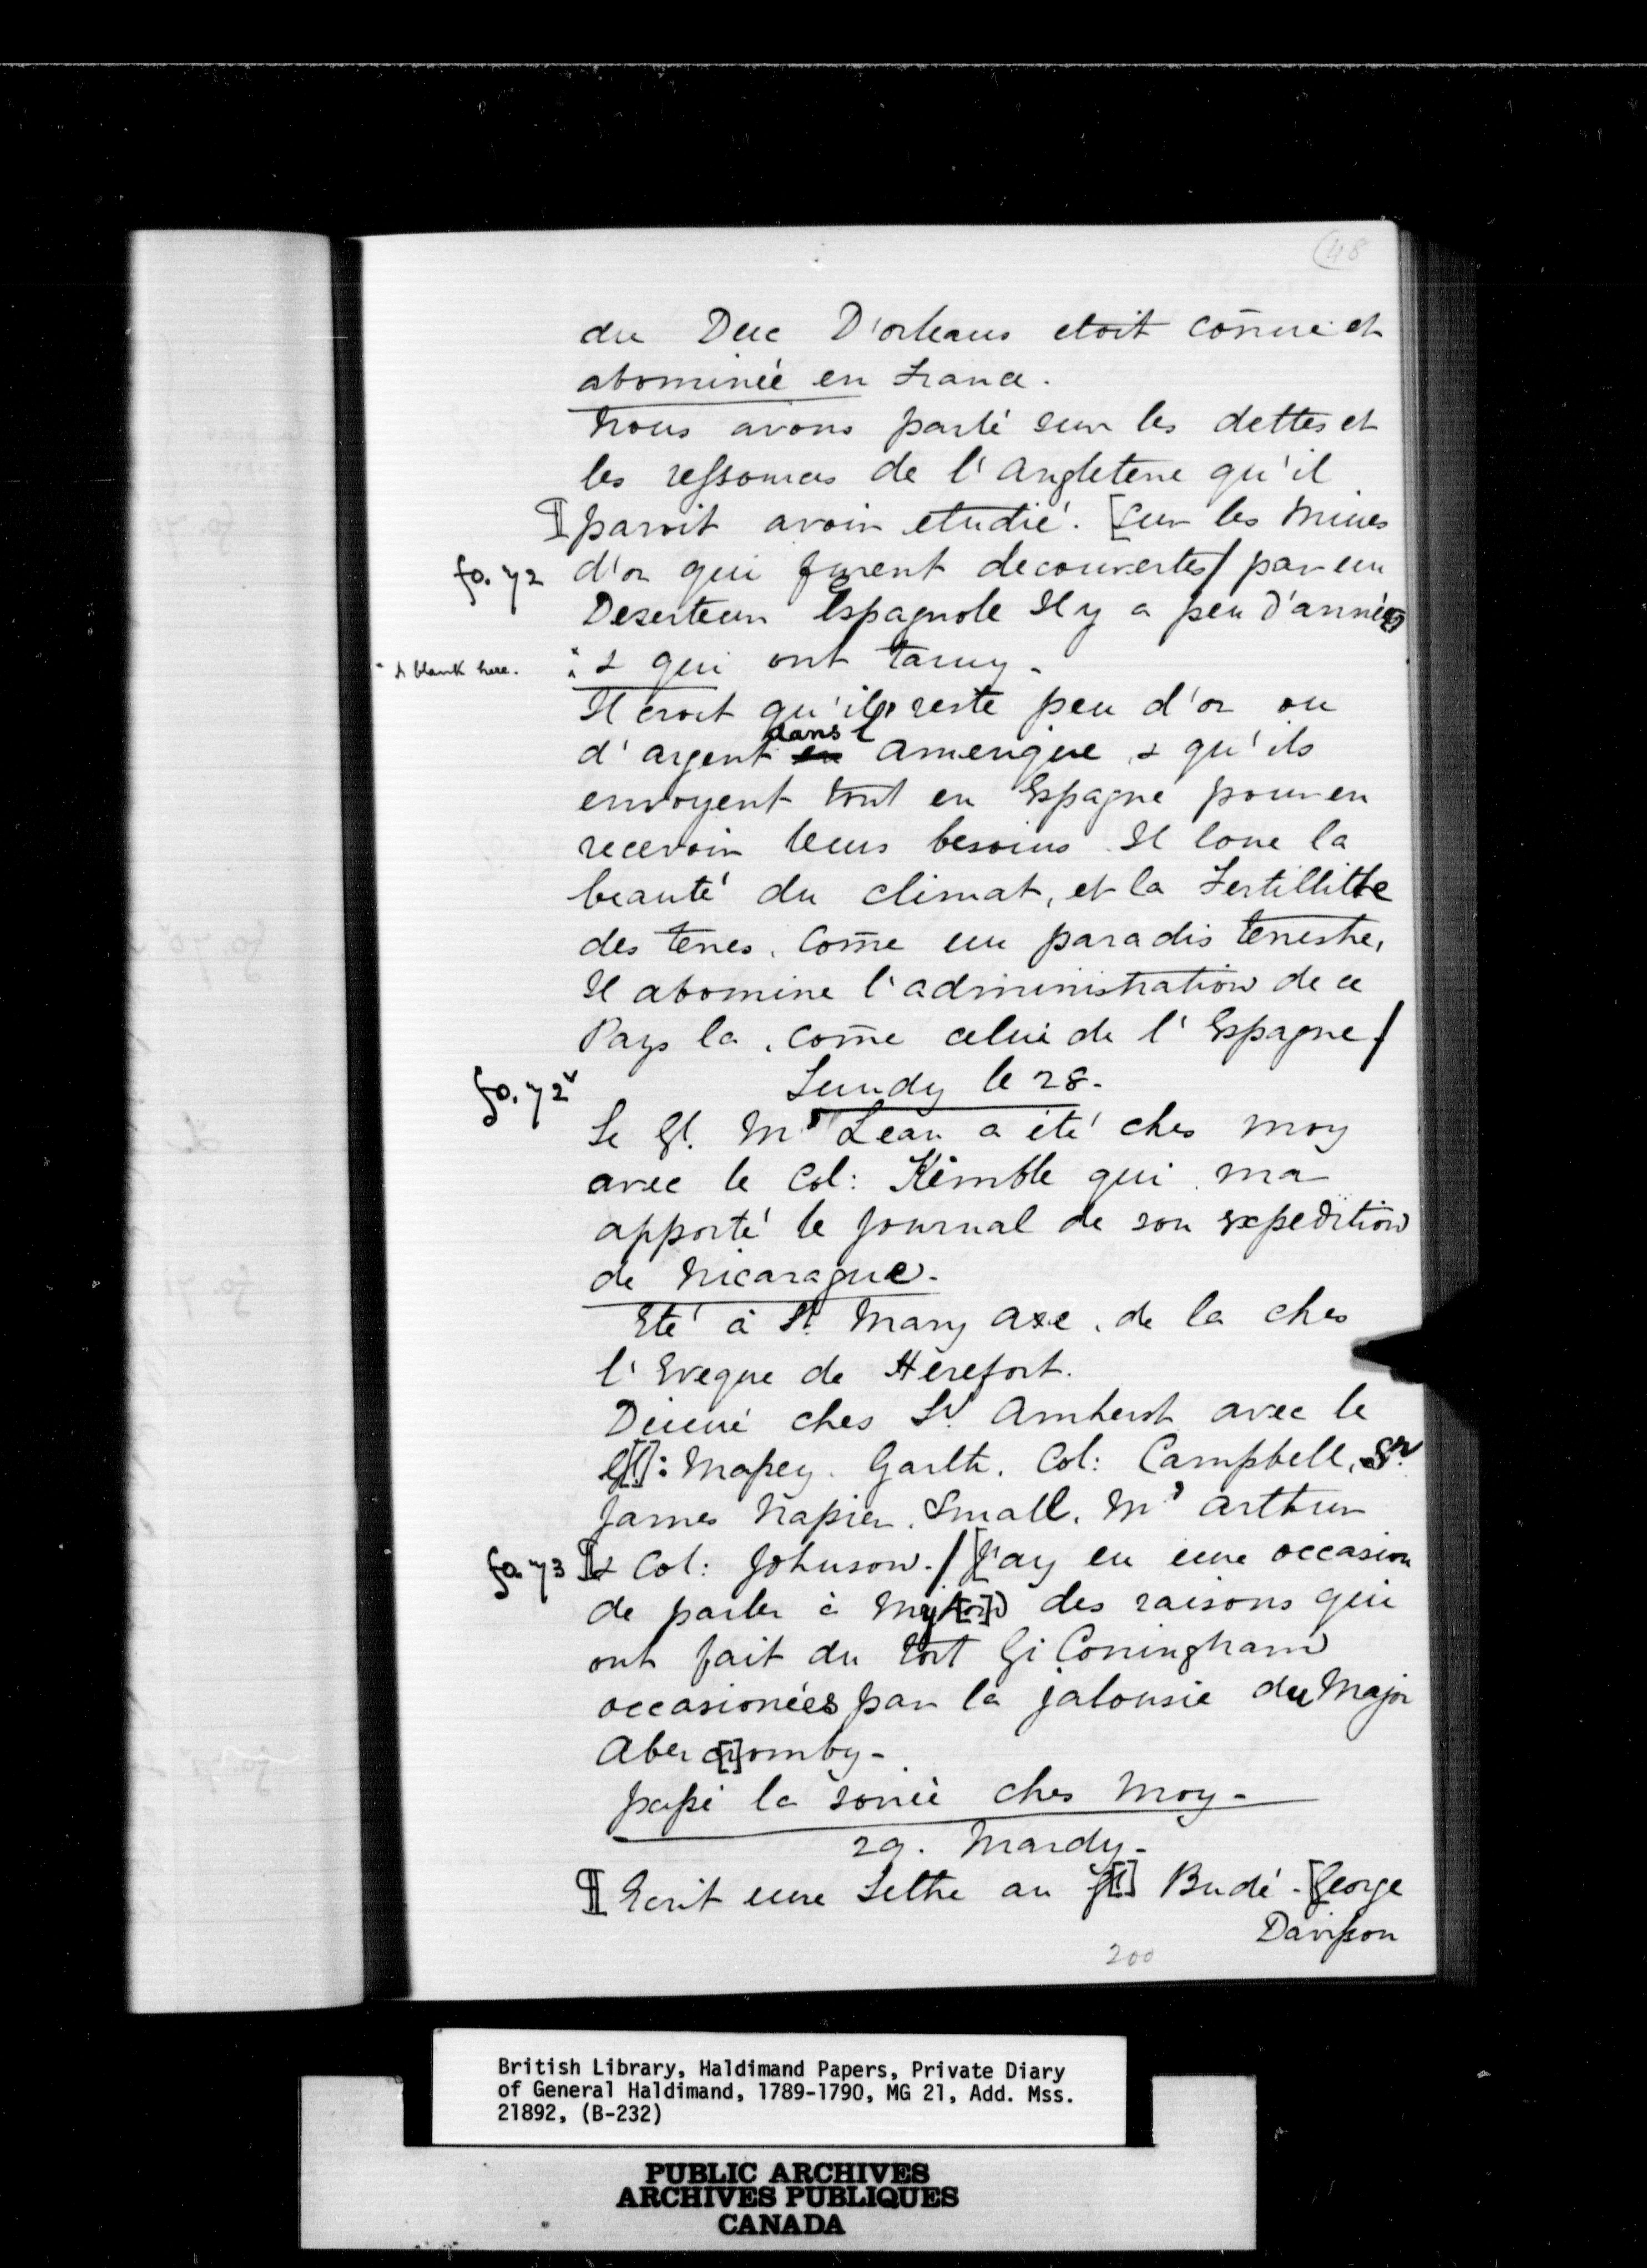 48
du Duc D'orleans etoit coñue et
abominée en France.
Nous avons parlé sur les dettes et
les ressources de l'Angleterre qu'il
paroit avoir etudié. [Sur les Mines
fo. 72 d'or qui furent decouvertes/ par un
Deserteur Espagnole Il y a peu d'années
* A blank here. * & qui ont tarry -
Il croit qu'il reste peu d'or ou
d'argent dans l' Amerique, & qu'ils
envoyent tout en Espagne pour en
recevoir leurs besoins. Il loue la
beauté du climat, et la Fertillitte
des terres, Coṁe un paradis terrestre,
Il abomine l'administration de ce
Pays la, coṁe celui de l'Espagne/
fo. 72v Lundy le 28.
Le Gl. Mc Lean a été ches moy
avec le Col: Kemble qui ma
apporté le Journal de son expedition
de Nicaragua.
Eté à St. Mary Axe, de la ches
l'Eveque de Herefort.
Dinné ches Ld. Amherst avec le
Gl[]: Massey. Garth. Col: Campbell, Sr.
James Napier. Small. Mc Arthur
fo. 73 & Col: Johnson./ [J'ay eu une occasion
de parler à Mylord des raisons qui
ont fait du tort Gi Coningham
occasionées par la jalousie du Major
Abercromby -
passé la soirée ches moy -
29. Mardy -
Ecrit une Lettre au Gl[] Budé. [George
Davisson
200
British Library, Haldimand Papers, Private Diary
of General Haldimand, 1789-1790, MG 21, Add. Mss.
21892, (B-232)
PUBLIC ARCHIVES
ARCHIVES PUBLIQUES
CANADA